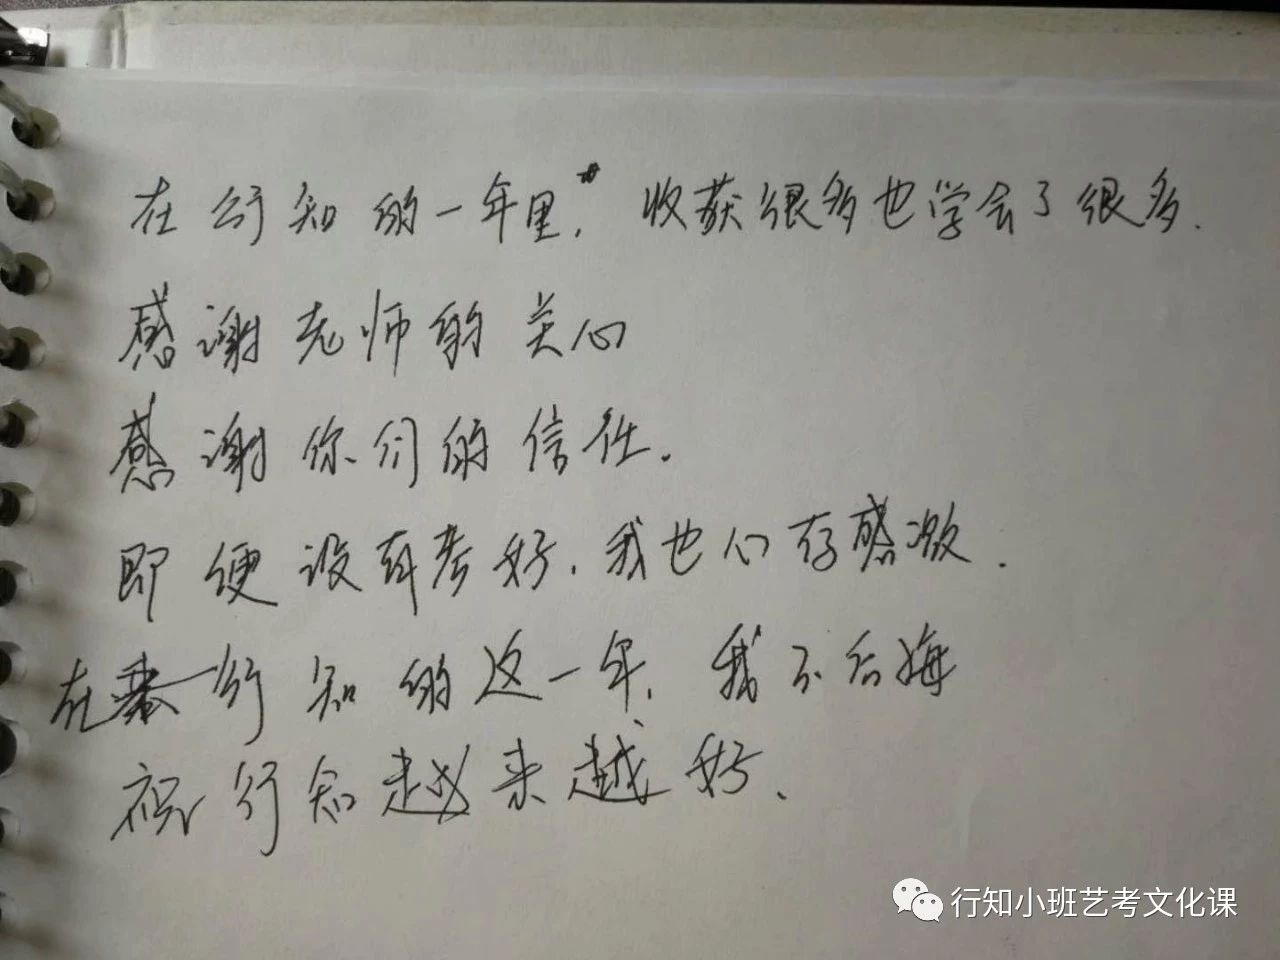 在行知的一年里，收获很多也学会了很多.
感谢老师的关心
感谢你们的信任.
即便没有考好.我也心存感激.
在行知的这一年,我不后悔
祝行知越来越好.
行知小班艺考文化课